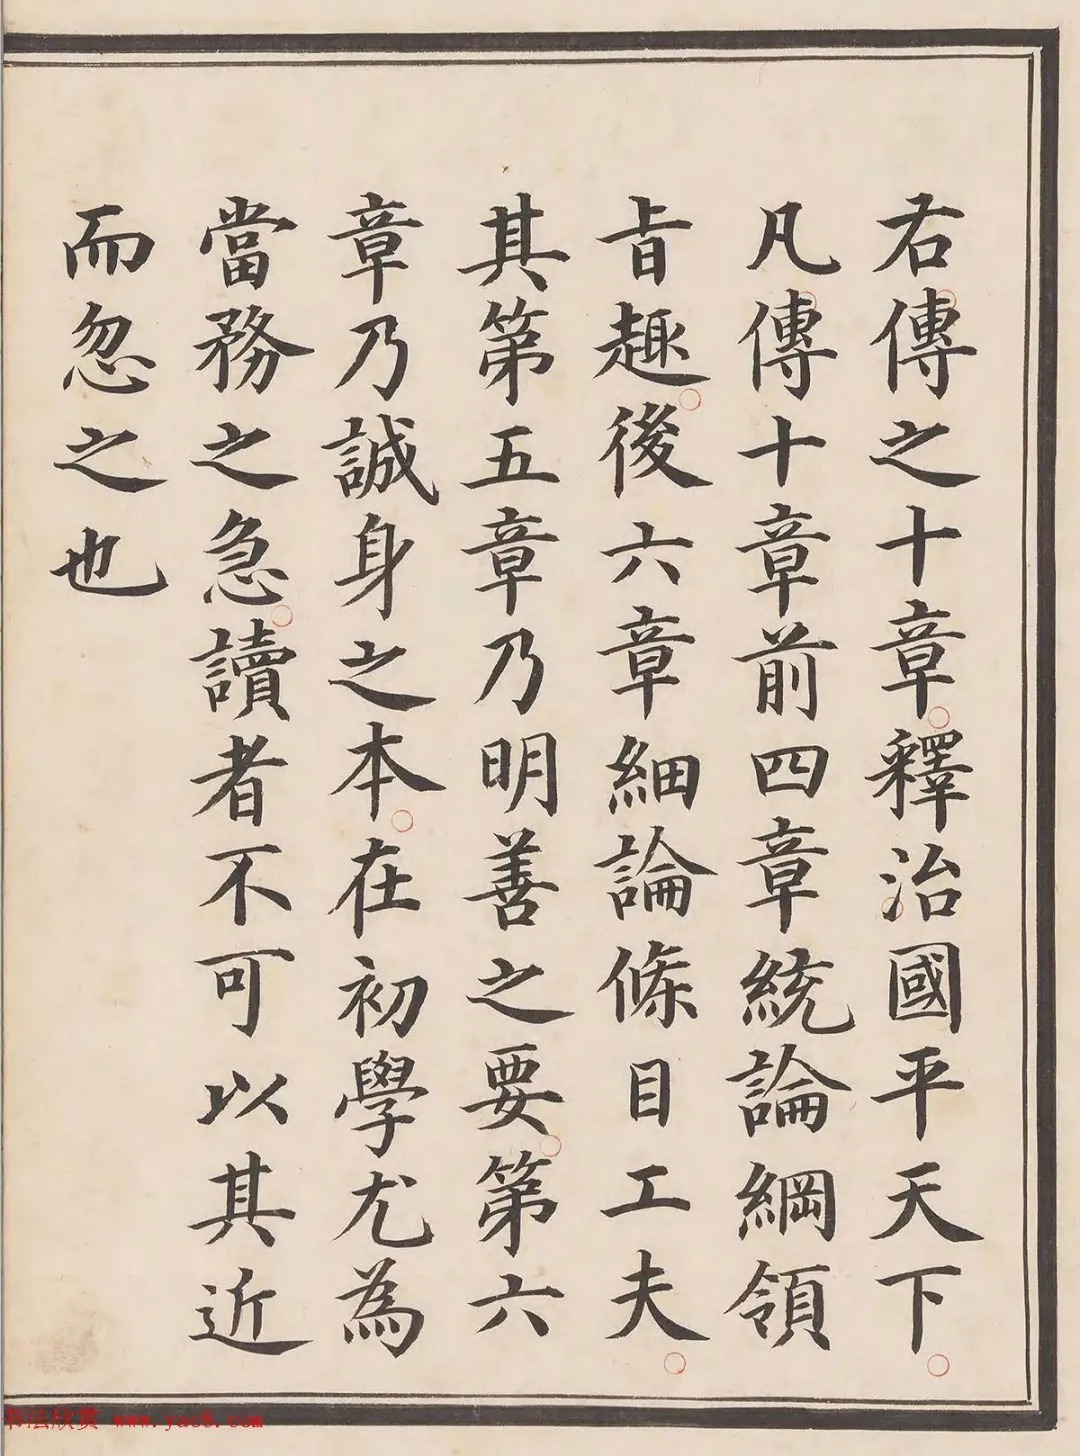 右傳之十章釋治國平天下
凡傳十章前四章統論綱領
旨趣後六章細論條目工夫
其第五章乃明善之要第六
章乃誠身之本在初學尤為
當務之急讀者不可以其近
而忽之也
书法欣赏 www.yac8.com